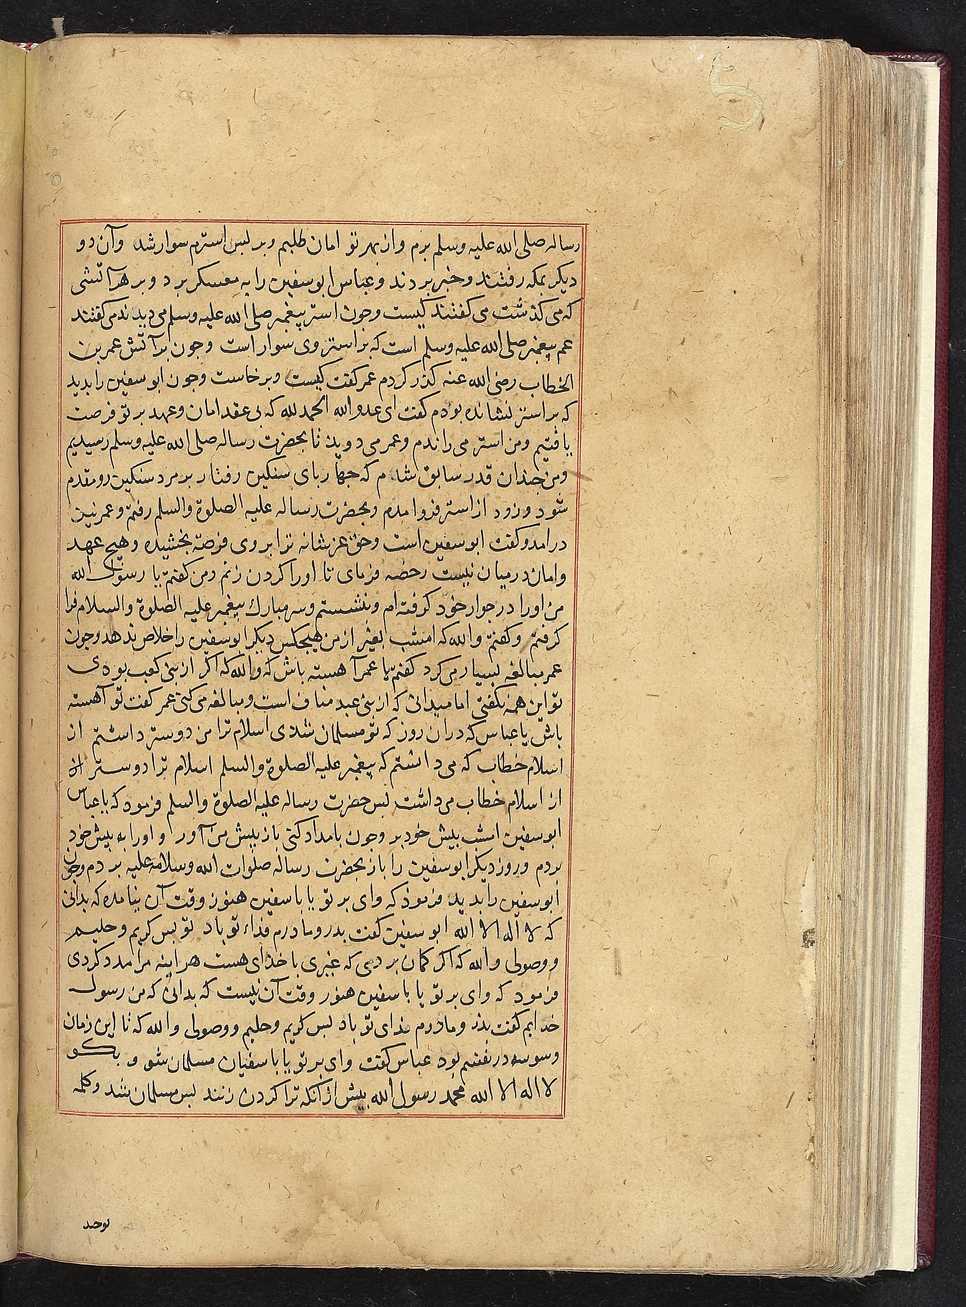 رساله صلی الله علیه وسلم برم و از بهر تو امان طلبم و بر پس استرم سوار شد و آن دو
دیکر بمکه رفتند و خبر بردند و عباس ابوسفین را به معسکر برد و بر هر آتشی
که می کذشت می کفتند کیست و چون استر پیغمبر صلی الله علیه وسلم می دیدند می کفتند
عم پیغمبر صلی الله علیه وسلم است که بر استر وی سوار است و چون بر آتش عمر بن
الخطاب رضی الله عنه کذر کردم عمر کفت کیست و برخاست و چون ابوسفین را بدید
که بر استر نشانده بودم کفت ای عدو الله الحمد لله که بی عقد امان و عهد بر تو فرصت
یافتیم و من استر می راندم و عمر می دوید تا بحضرت رساله صلی الله علیه وسلم رسیدیم
و من چندان قدر سابق شدم که چهارپای سنکین رفتار بر مرد سنکین رو مقدم
شود و زود از استر فروامدم و بحضرت رساله علیه الصلوة والسلم رفتم و عمر نیز
درامد و کفت ابوسفین است و حق عز شانه ترا بر وی فرصة بخشیده و هیچ عهد
و امان درمیان نیست رخصه فرمای تا اورا کردن زنم و من کفتم یا رسول الله
من اورا در جوار خود کرفته ام و نشستم و سر مبارک پیغمبر علیه الصلوة والسلام فرا
کرفتم و کفتم والله که امشب بغیر از من هیچکس دیکر ابوسفین را خلاص ندهد و چون
عمر مبالغه بسیار می کرد کفتم یا عمر آهسته باش که والله که اکر از بنی کعب بودی
تو این همه نکفتی اما میدانی که از بنی عبد مناف است و مبالغه می کنی عمر کفت تو آهسته
باش یا عباس که دران روز که تو مسلمان شدی اسلام ترا من دوستر داشتم از
اسلام خطاب که می دانشتم که پیغمبر علیه الصلوة والسلم اسلام ترا دوستر از
از اسلام خطاب می داشت پس حضرت رساله علیه الصلوة والسلم فرمود که یا عباس
ابوسفین امشب پیش خود بر و چون بامداد کنی باز پیش من آور و اورا به پیش خود
بردم و روز دیکر ابوسفین را باز بحضرت رساله صلوات الله وسلامه علیه بردم و چون
ابوسفین را بدید فرمود که وای بر تو یا باسفین هنوز وقت آن نیامده که بدانی
که لا اله الا الله ابوسفین کفت پدر و مادرم فداء تو باد تو بس کریم و حلیم
و وصولی والله که اکر کمان بردمی که غیری با خدای هست هراینه مرا مدد کردی
فرمود که وای بر تو یا باسفین هنوز وقت آن نیست که بدانی که من رسول
خدایم کفت پدر و مادرم فدای تو باد بس کریم و حلیم و وصولی والله که تا این زمان
وسوسه در نفسم بود عباس کفت وای بر تو یا باسفیان مسلمان شو و بکو
لا اله الا الله محمد رسول الله پیش از آنکه ترا کردن زنند پس مسلمان شد و کلمه
توحید